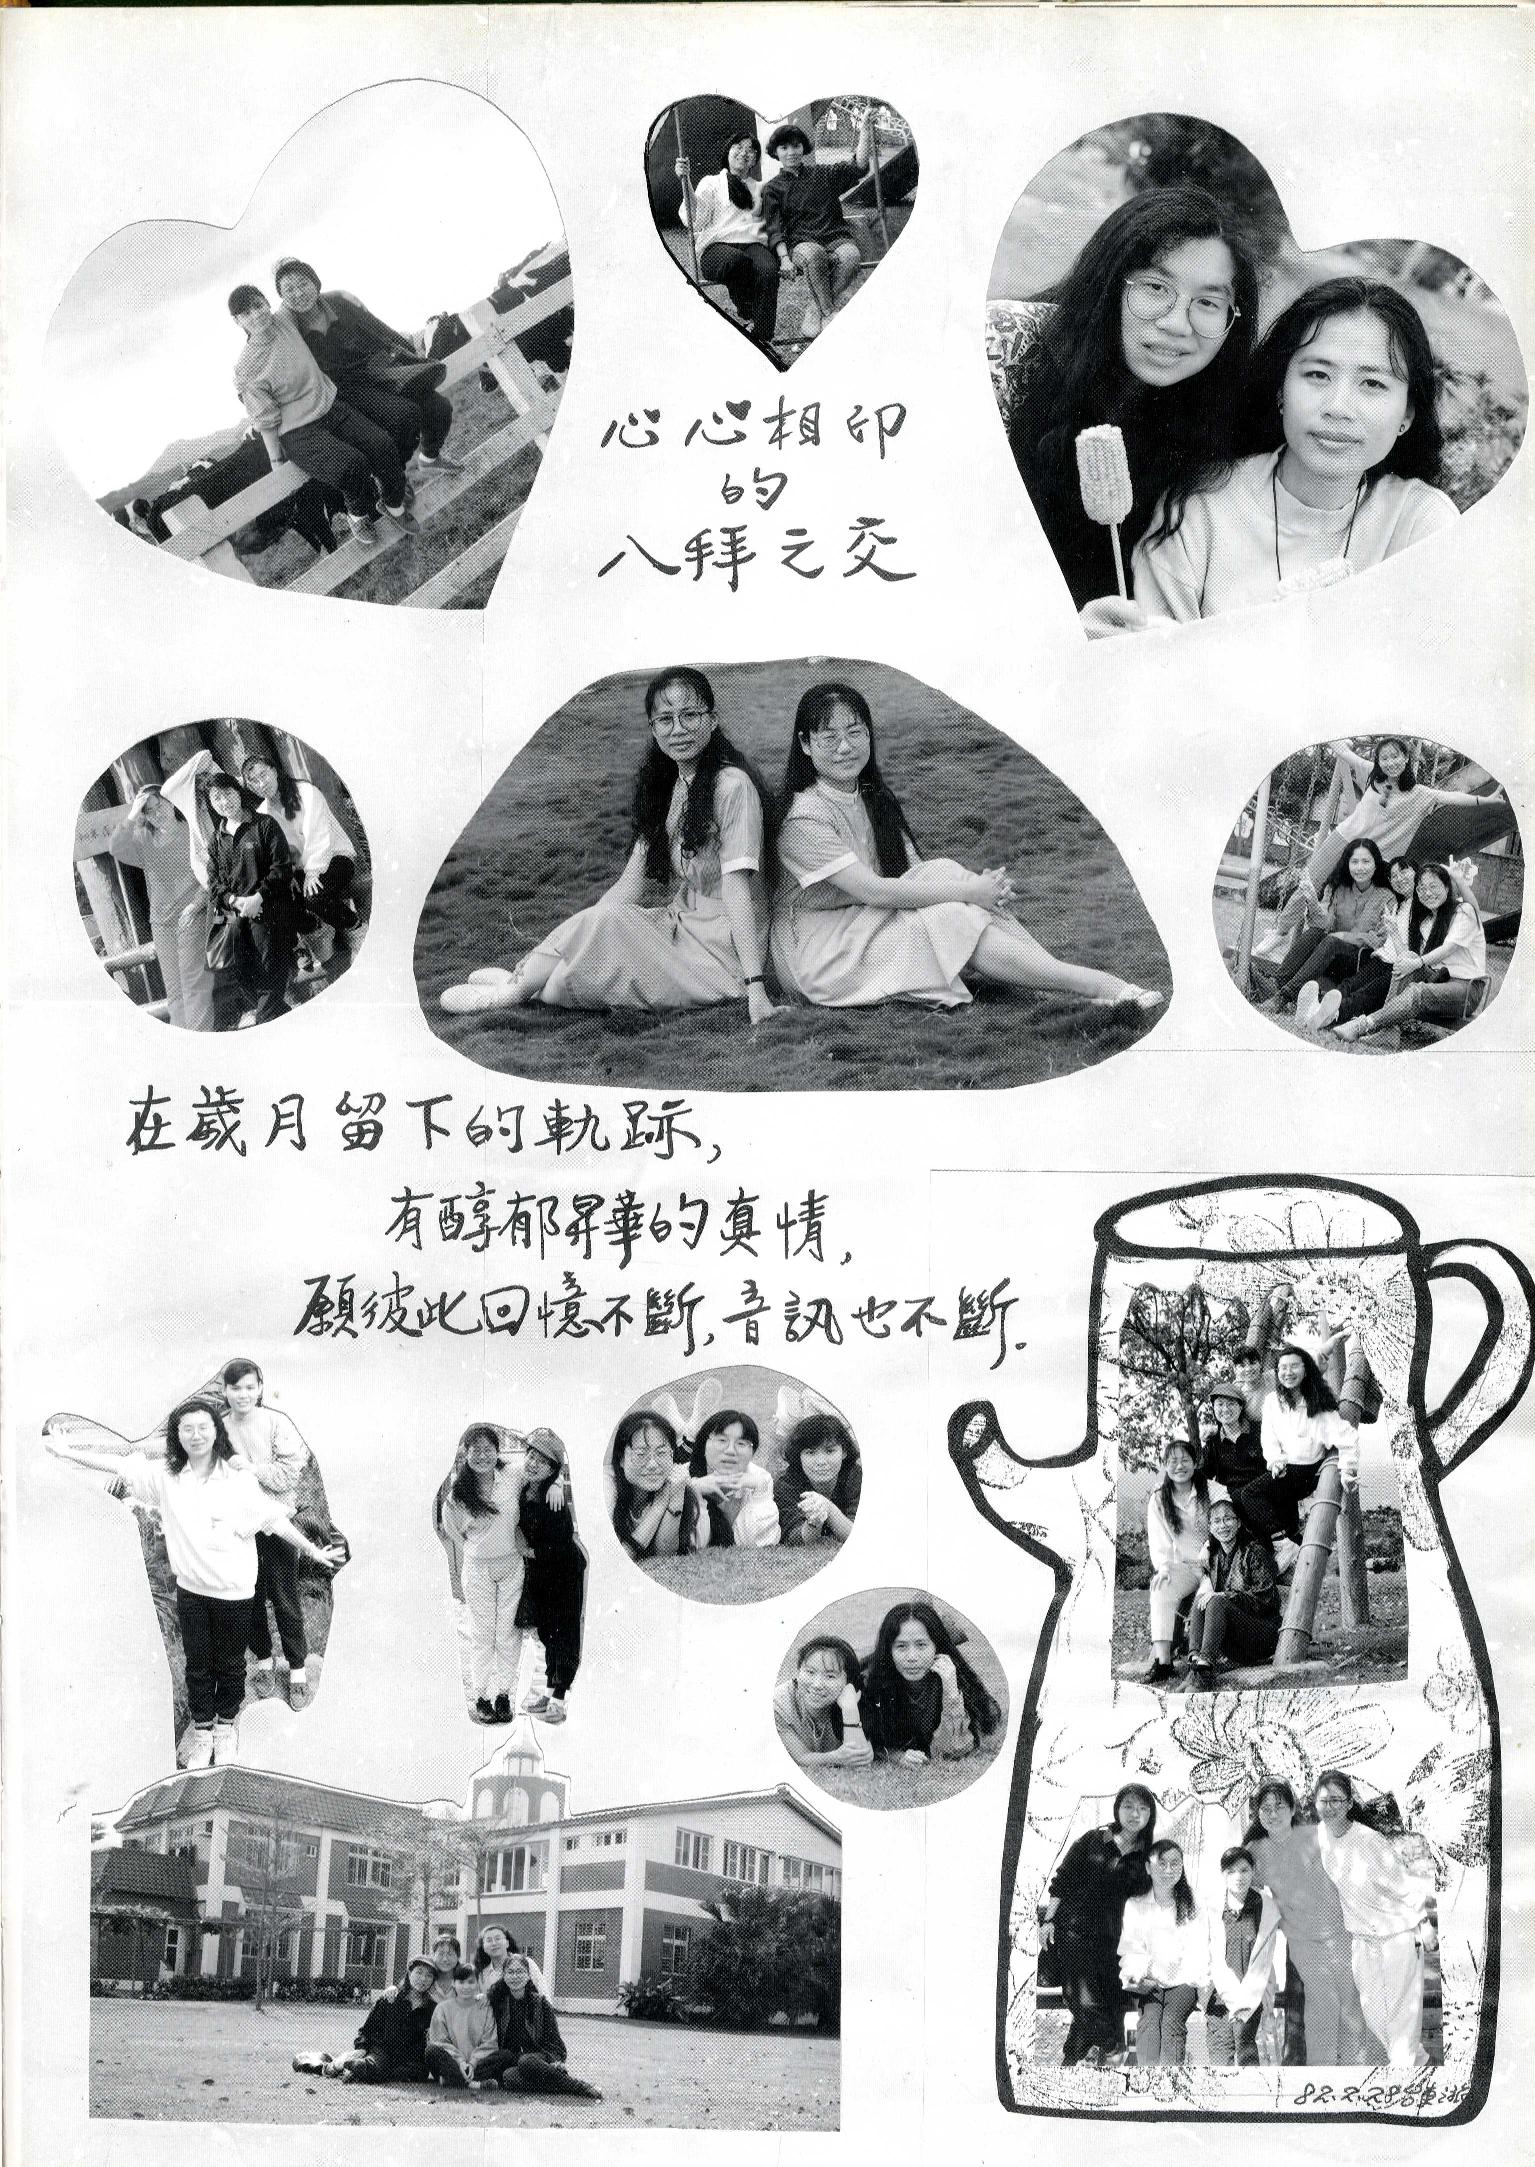 心心相印
的
八拜之交
在歲月留下的軌跡，
有醇郁昇華的真情，
願彼此回憶不斷，音訊也不斷。
82.2.28台東遊